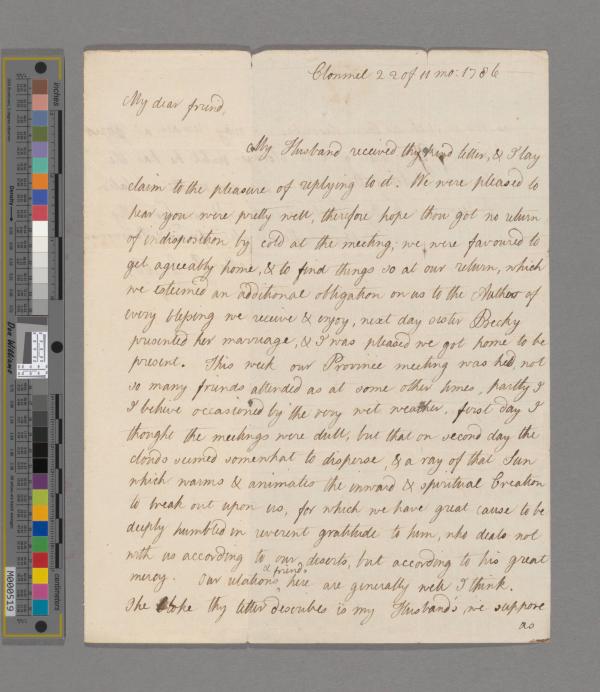 Clonmel 22 of 11 mo: 1786
My dear friend,
My Husband received thy kind letter, & I lay
claim to the pleasure of replying to it. We were pleased to
hear you were pretty well, therefore hope thou got no return
of indisposition by cold at the meeting; we were favoured to
get agreeably home, & to find things so at our return, which
we esteemed an additional obligation on us to the Author of
every blessing we receive & enjoy, next day sister Becky
presented her marriage, & I was pleased we got home to be
present. This week our Province meeting was held, not
so many friends attended as at some other times, partly I
I believe occasioned by the very wet weather. first day I
thought the meetings were dull, but that on second day the
clouds seemed somewhat to disperse, & a ray of that Sun
which warms & animates the inward & spiritual Creation
to break out upon us, for which we have great cause to be
deeply humbled in reverent gratitude to him, who deals not
with us according to our deserts, but according to his great
mercy. Our relations & friends here are generally well I think.
The Cloke thy letter describes is my Husband's, we suppose
as
inches
centimetres
Density
Don Williams
M000519